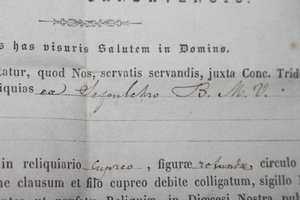 s has visuris Salutem in Domino.
tatur, quod Nos, servatis servandis, juxta Conc. Trid
iquias ex Sepulchro B. M. V.
in reliquiario cupreo, figuræ rotundæ, circulo
ne clausum et filo cupreo debite colligatum, sigillo
Reliquiæ in Diœcesi Nostra pub